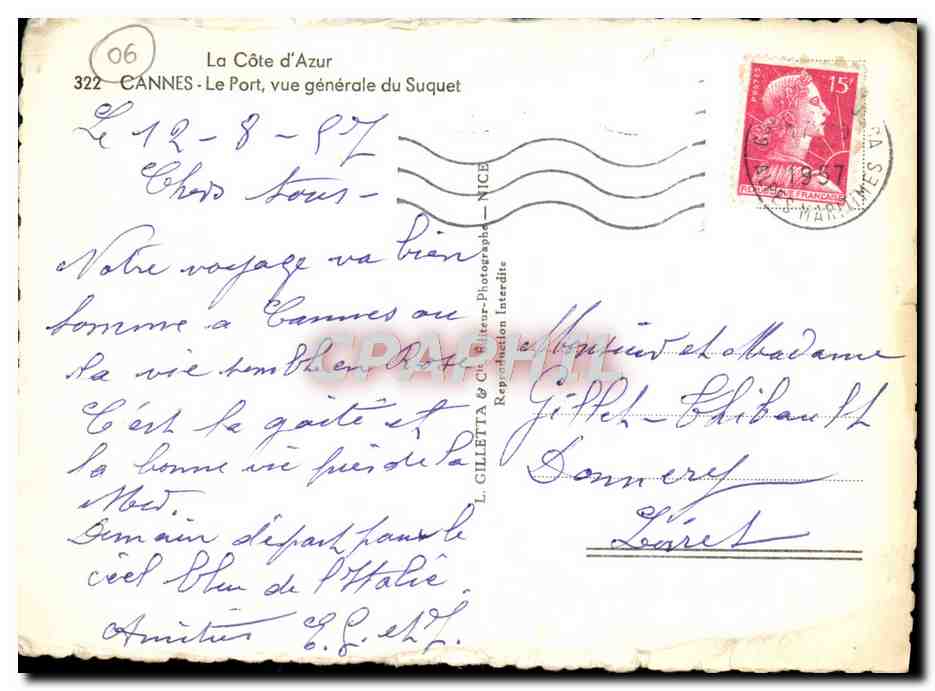 06
La Côte d'Azur
322 CANNES - Le Port, vue générale du Suquet
Le 12-8-57
Chers tous -
Notre voyage va bien
sommes a Cannes ou
la vie semble en Rose
C'est la gaité et
la bonne vie près de la
Mer.
Demain départ pour le
ciel bleu de l'Italie.
Amitiés E.G. et J.
L. GILLETTA & Cie Editeur-Photographe — NICE
Reproduction Interdite
POSTES
15F
REPUBLIQUE FRANÇAISE
1957
MARITIMES
CPAPHIL
Monsieur et Madame
Gillet-Thibault
Donnery
Loiret